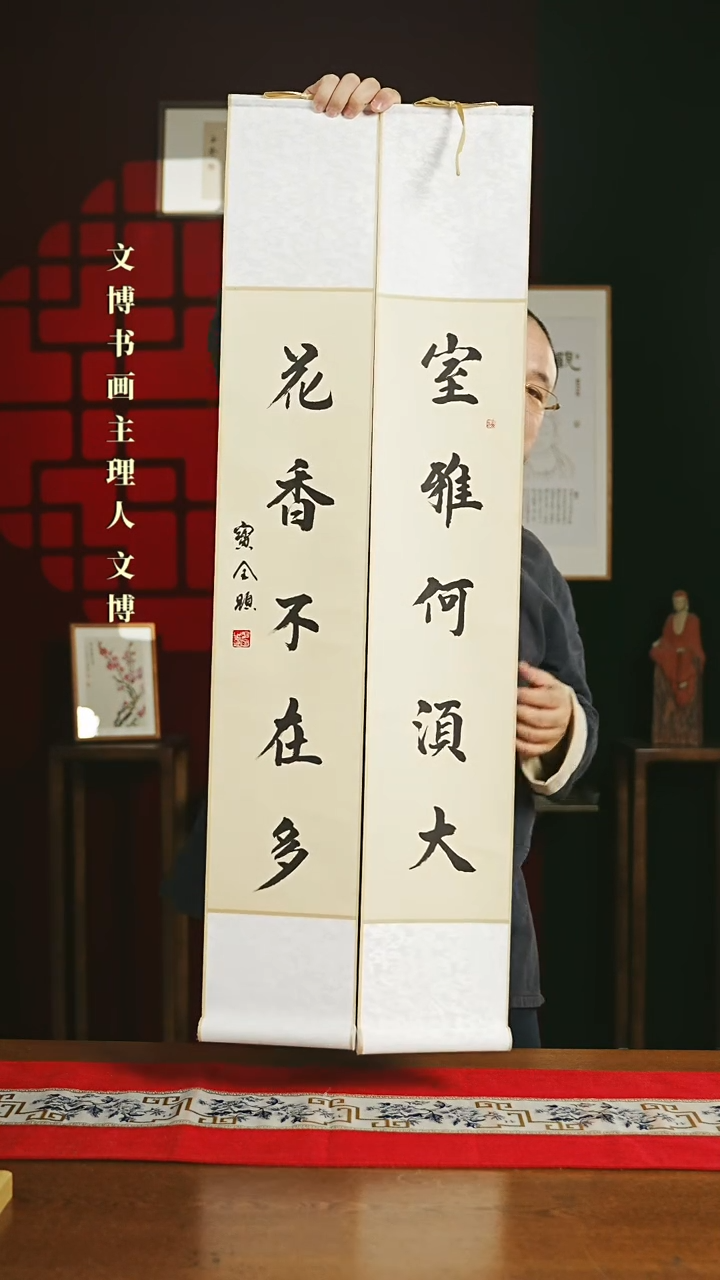 室雅何須大
花香不在多
文博书画主理人 文博